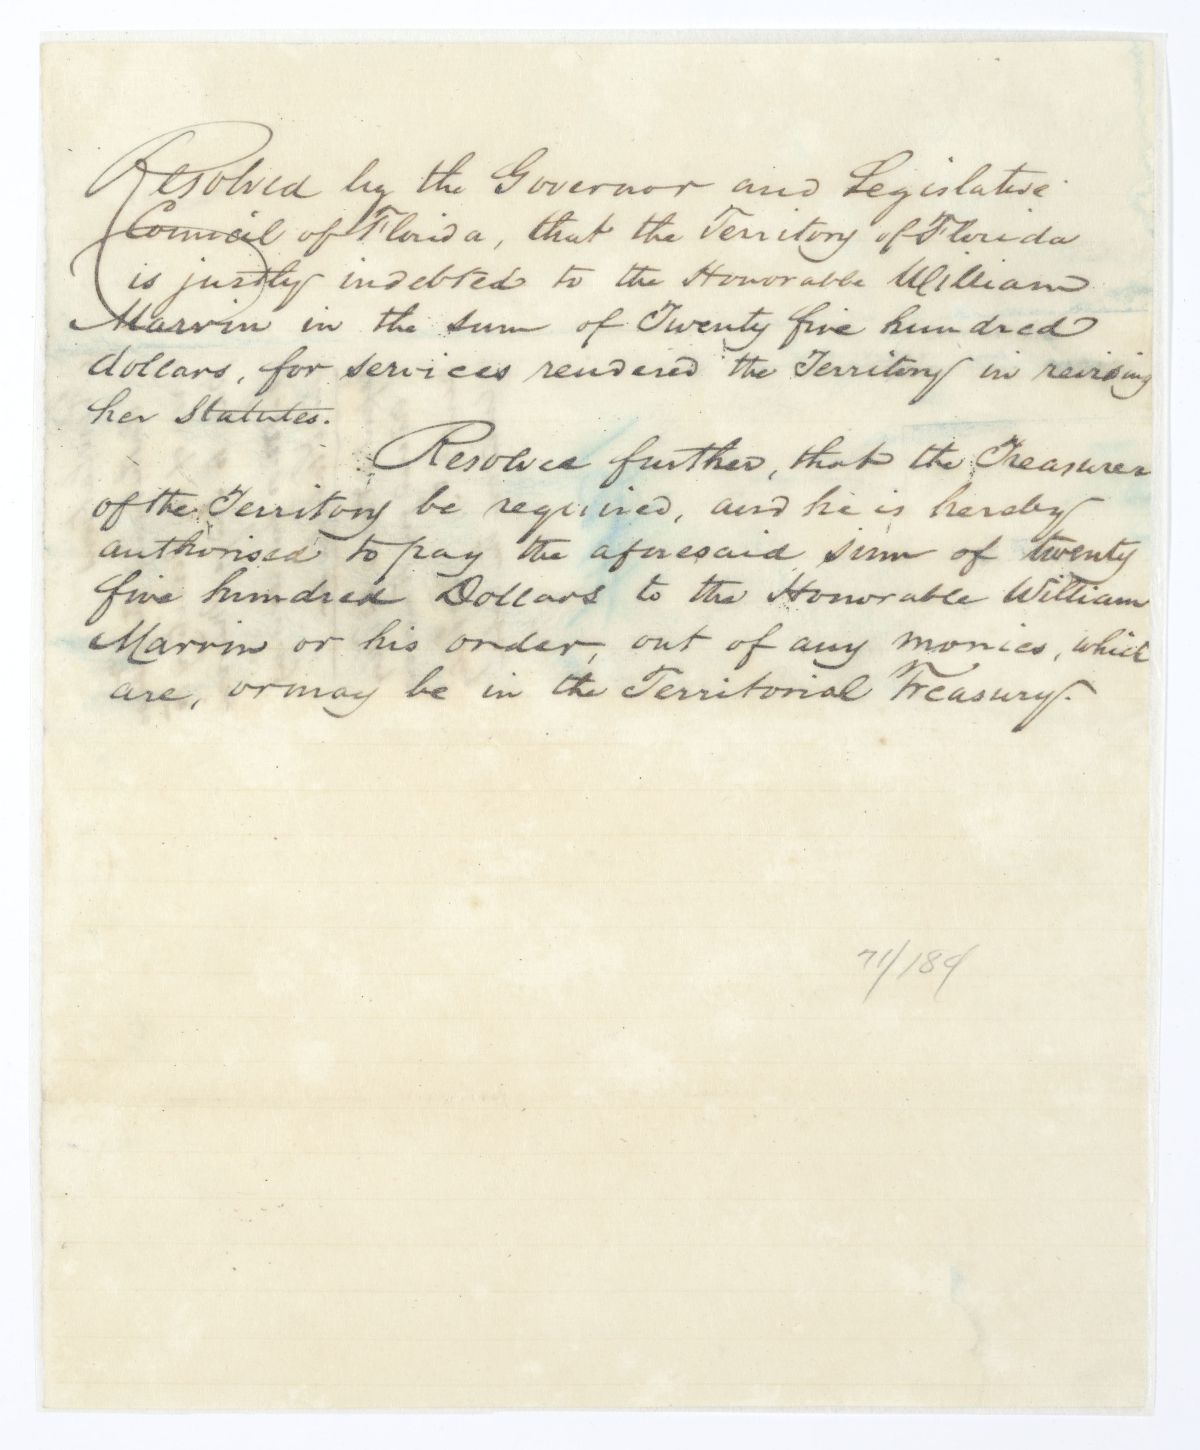 Resolved by the Governor and Legislative
Council of Florida, that the Territory of Florida
is justly indebted to the Honorable William
Marvin in the sum of Twenty five hundred
dollars, for services rendered the Territory in revising
her Statutes.
Resolved further, that the Treasurer
of the Territory be required, and he is hereby
authorised to pay the aforesaid sum of twenty
five hundred Dollars to the Honorable William
Marvin or his order, out of any monies, which
are, or may be in the Territorial Treasury.
71/184